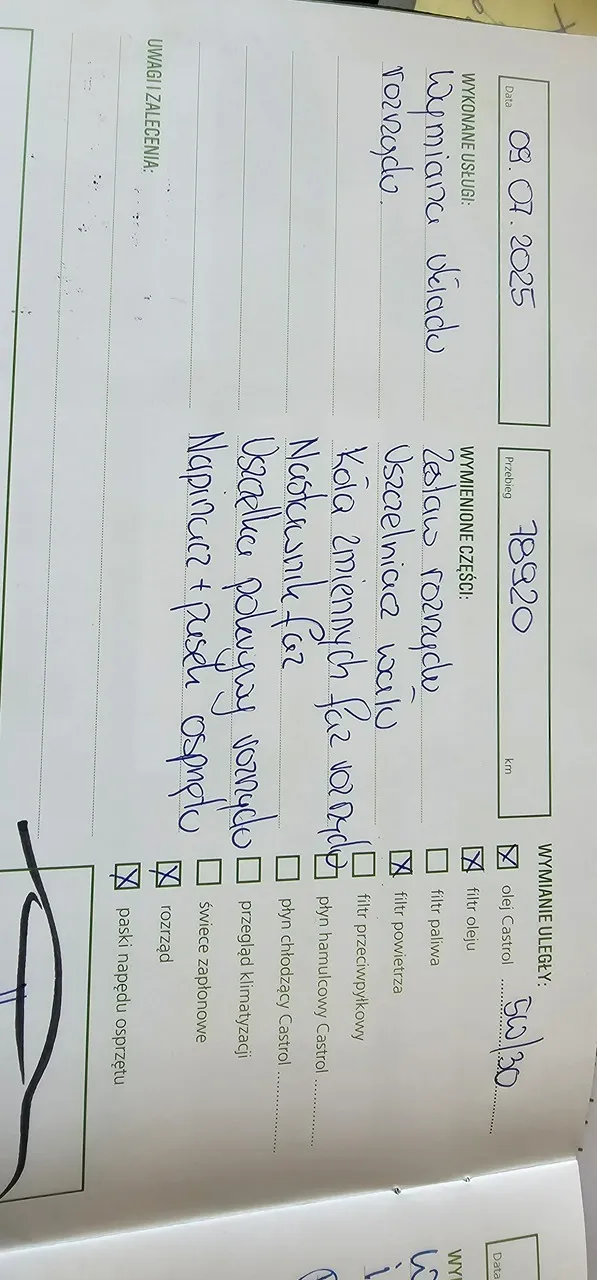 Data 09.07.2025
Przebieg 78920 km
WYKONANE USŁUGI:
Wymiana układu
rozrządu.
UWAGI I ZALECENIA:
WYMIENIONE CZĘŚCI:
Zestaw rozrządu
Uszczelniacz wału
Koła zmiennych faz rozrządu
Nastawnik faz
Uszczelka pokrywy rozrządu
Napinacz + pasek osprzętu
WYMIANIE ULEGŁY:
olej Castrol 5W/30
filtr oleju
filtr paliwa
filtr powietrza
filtr przeciwpyłkowy
płyn hamulcowy Castrol
płyn chłodzący Castrol
przegląd klimatyzacji
świece zapłonowe
rozrząd
paski napędu osprzętu
Data
WY